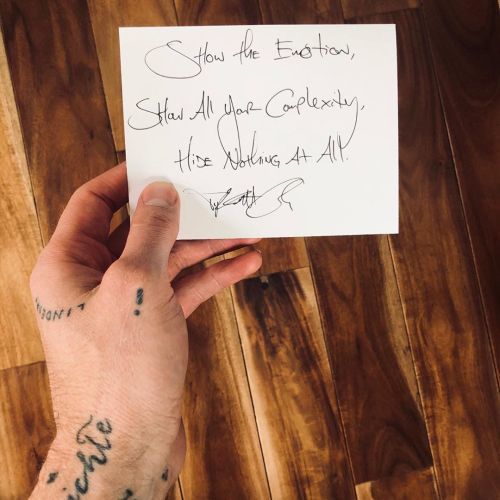 Show the Emotion,
Show All Your Complexity,
Hide Nothing At All.